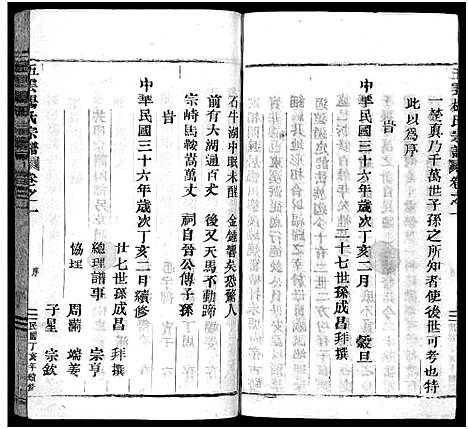 五雲楊氏宗譜 卷之一
一塋真乃千萬世子孫之所知者使後世可考也特
此以為序
旹
中華民國三十六年歲次丁亥二月 穀旦
三十七世孫成昌拜撰
石牛湖中眠未醒 金鐘響矣恐驚人
前有大湖通百丈 後又天馬不動蹄
宗崎馬鞍嵩萬丈 祠自晉公傳子孫
旹
中華民國三十六年歲次丁亥二月續修
廿七世孫成昌拜撰
總理譜事 宗亨
協理 周蘭 端姜
子星 宗欽
五雲楊氏宗譜 卷之一 序 民國丁亥年續修